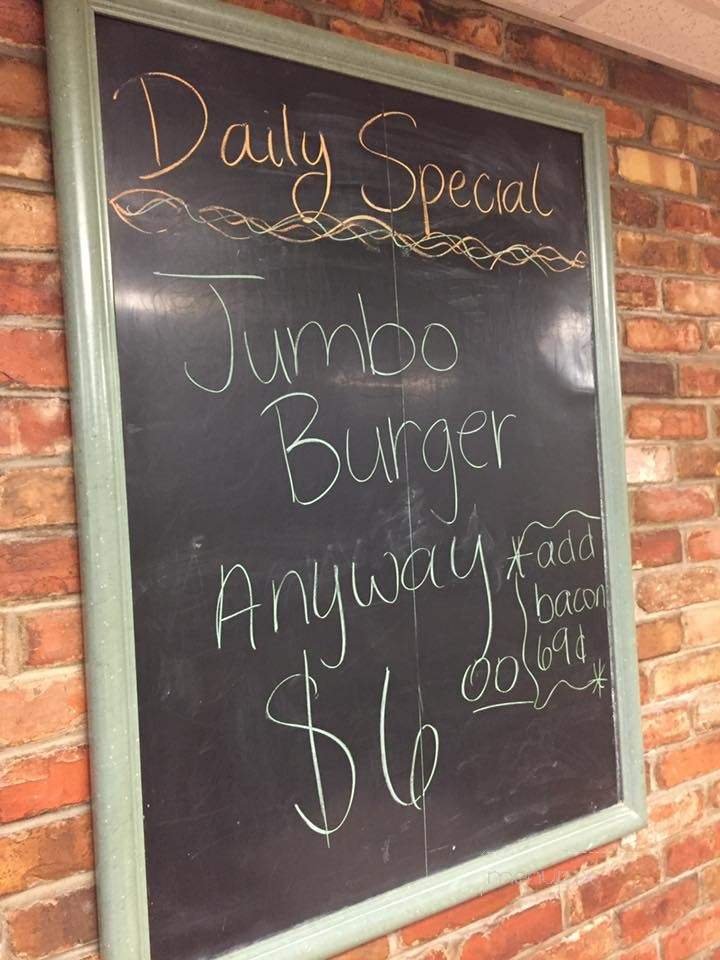 Daily Special
Jumbo
Burger
Anyway
$6 00
*add
bacon
69¢*